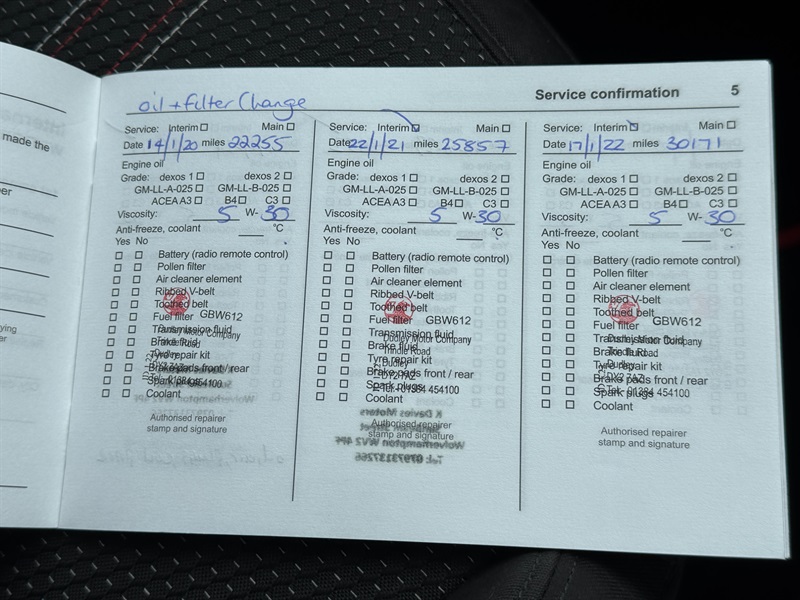 made the
er
ying
er
oil + filter Change
Service confirmation 5
Service: Interim Main
Date 14/1/20 miles 22255
Engine oil
Grade: dexos 1 dexos 2
GM-LL-A-025 GM-LL-B-025
ACEA A3 B4 C3
Viscosity: 5 W- 30
Anti-freeze, coolant °C
Yes No
Battery (radio remote control)
Pollen filter
Air cleaner element
Ribbed V-belt
Toothed belt
Fuel filter GBW612
Transmission fluid
Dudley Motor Company
Brake fluid
Trindle Road
Tyre repair kit
Dudley
Brake pads front / rear
DY2 7AZ
Spark plugs
Tel: 01384 454100
Coolant
Authorised repairer
stamp and signature
Service: Interim Main
Date 22/1/21 miles 25857
Engine oil
Grade: dexos 1 dexos 2
GM-LL-A-025 GM-LL-B-025
ACEA A3 B4 C3
Viscosity: 5 W- 30
Anti-freeze, coolant °C
Yes No
Battery (radio remote control)
Pollen filter
Air cleaner element
Ribbed V-belt
Toothed belt
Fuel filter GBW612
Transmission fluid
Dudley Motor Company
Brake fluid
Trindle Road
Tyre repair kit
Dudley
Brake pads front / rear
DY2 7AZ
Spark plugs
Tel: 01384 454100
Coolant
K Davies Motors
Authorised repairer
stamp and signature
Wolverhampton WV2 4PF
Tel: 07973137266
Service: Interim Main
Date 17/1/22 miles 30171
Engine oil
Grade: dexos 1 dexos 2
GM-LL-A-025 GM-LL-B-025
ACEA A3 B4 C3
Viscosity: 5 W- 30
Anti-freeze, coolant °C
Yes No
Battery (radio remote control)
Pollen filter
Air cleaner element
Ribbed V-belt
Toothed belt
Fuel filter GBW612
Transmission fluid
Dudley Motor Company
Brake fluid
Trindle Road
Tyre repair kit
Dudley
Brake pads front / rear
DY2 7AZ
Spark plugs
Tel: 01384 454100
Coolant
Authorised repairer
stamp and signature